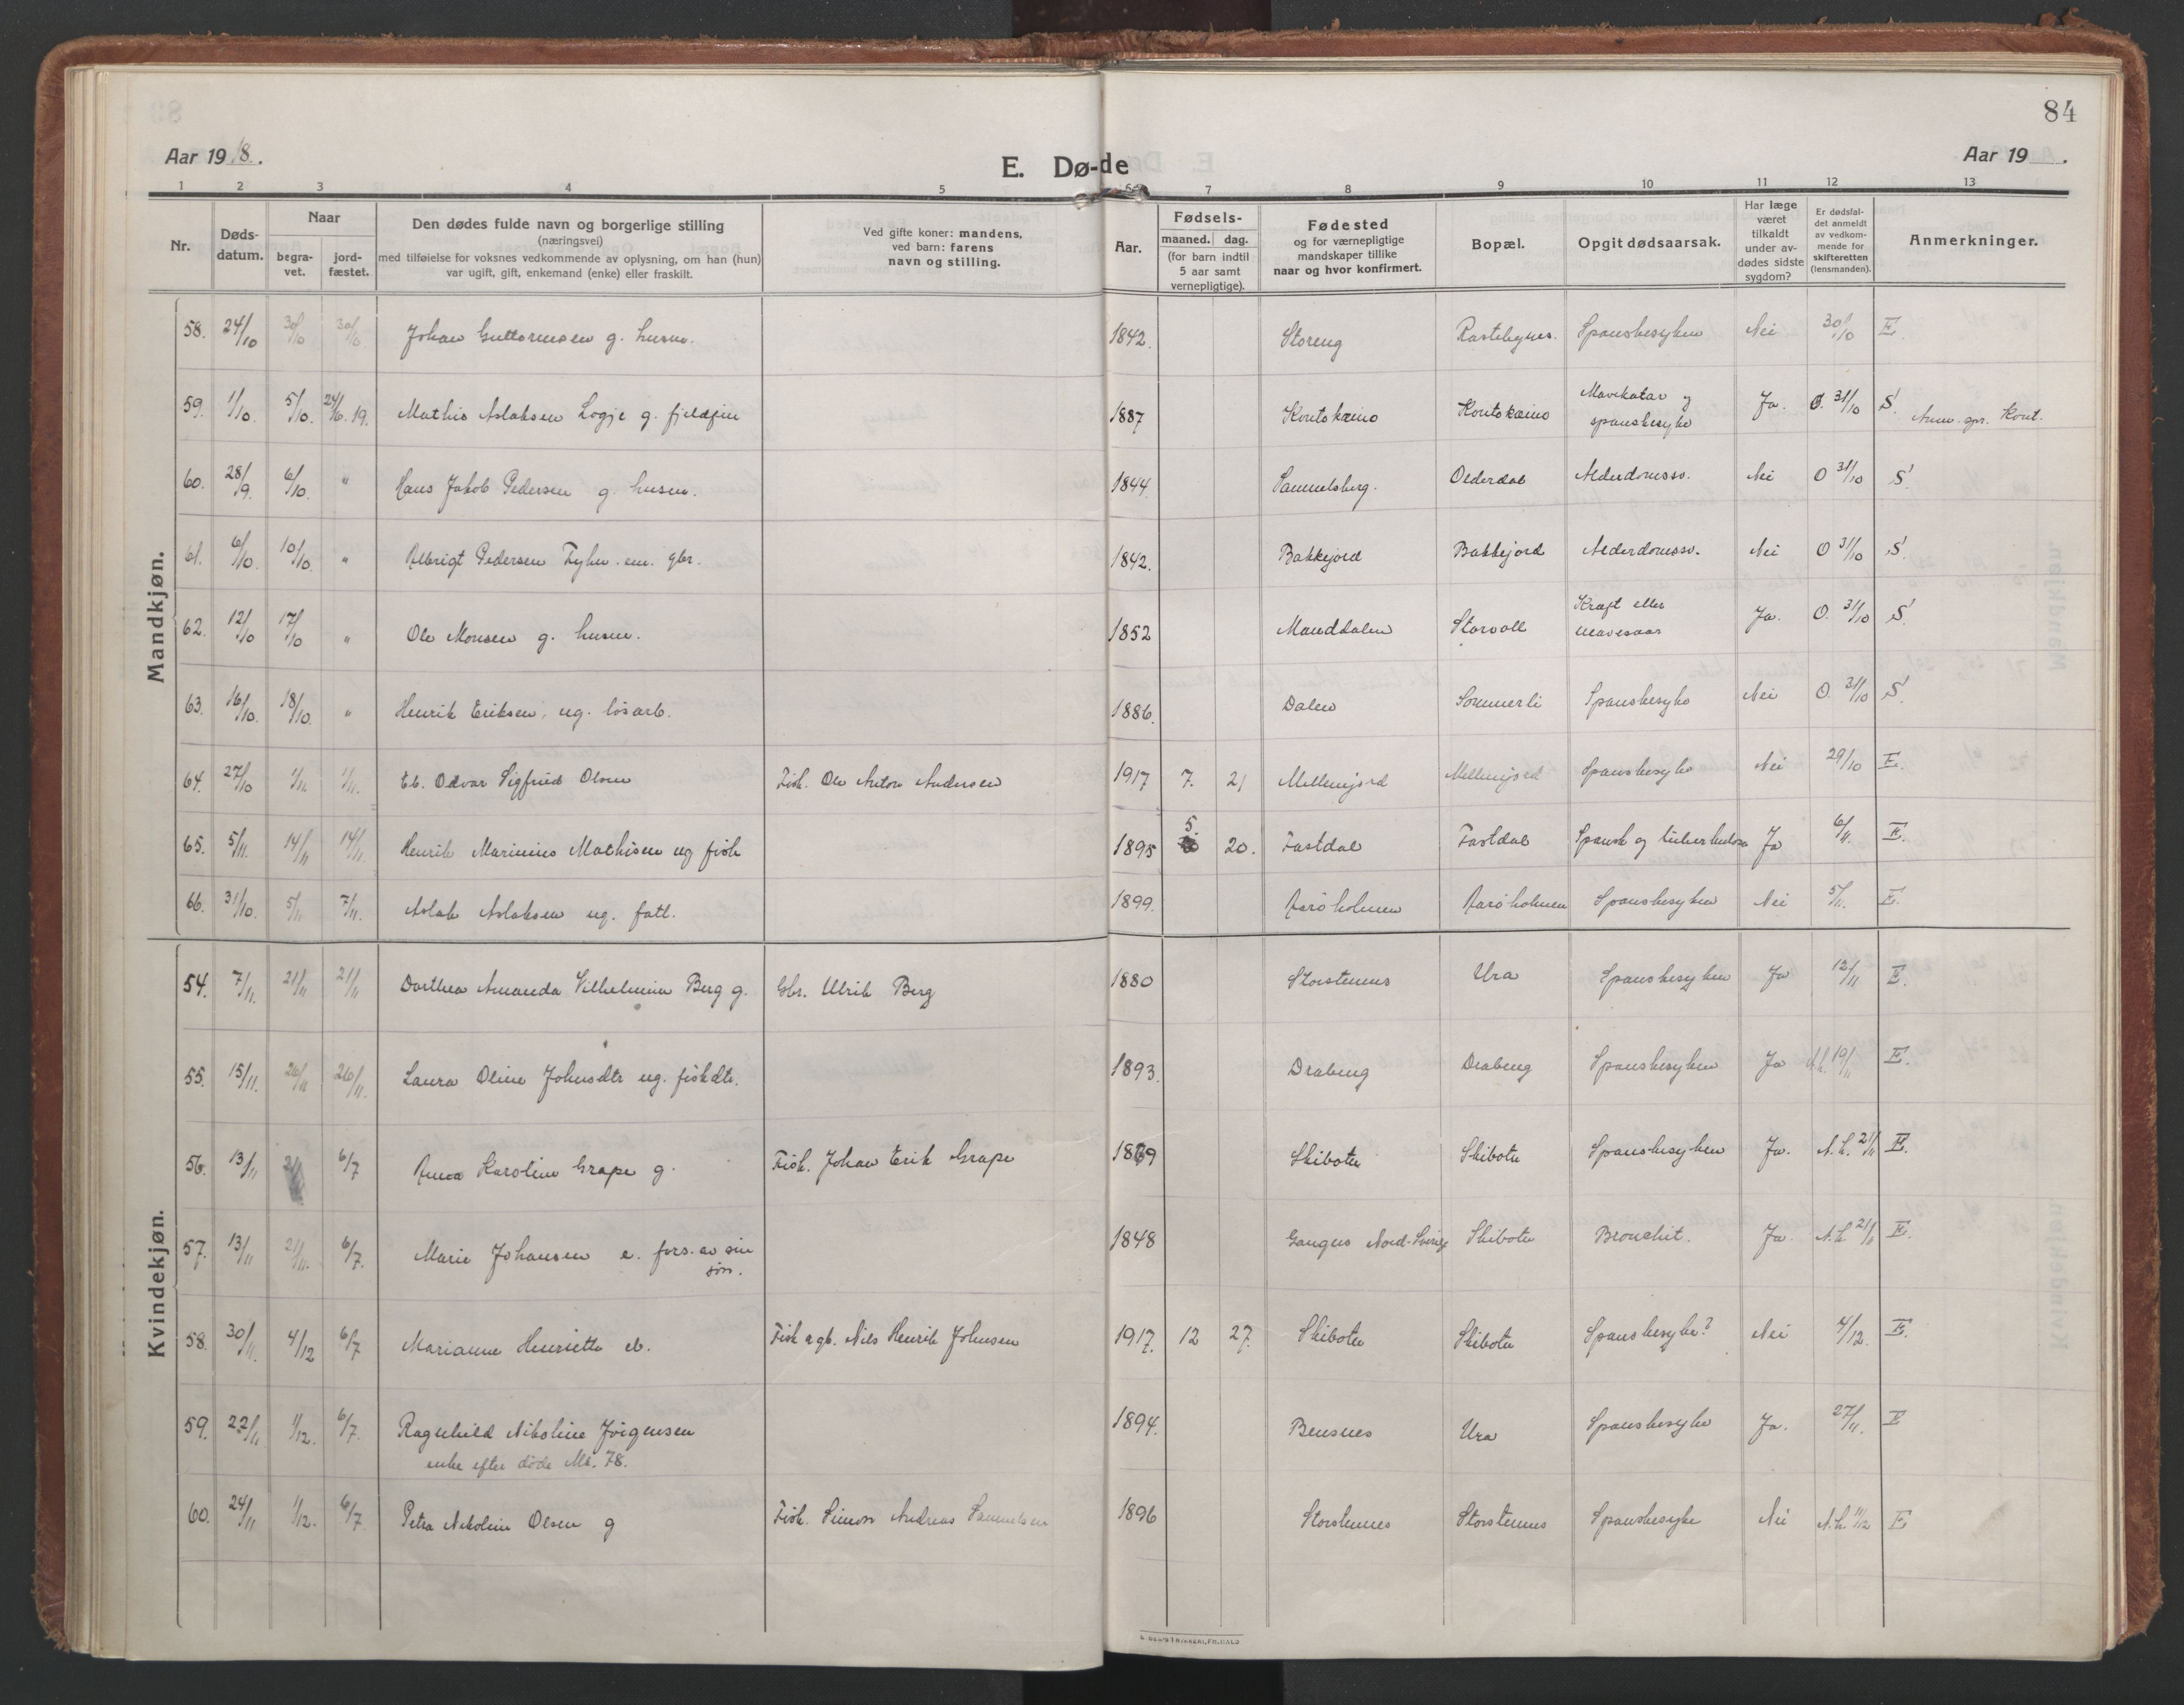 84
Aar 1918.
E. Dø-de
Aar 19 .
1 2 3 4 5 6 7 8 9 10 11 12 13
Nr.
Døds-
datum.
Naar
begra-
vet.
jord-
fæstet.
Den dødes fulde navn og borgerlige stilling
(næringsvei)
med tilføielse for voksnes vedkommende av oplysning, om han (hun)
var ugift, gift, enkemand (enke) eller fraskilt.
Ved gifte koner: mandens,
ved barn: farens
navn og stilling.
Aar.
Fødsels-
maaned. dag.
(for barn indtil
5 aar samt
vernepligtige).
Fødested
og for værnepligtige
mandskaper tillike
naar og hvor konfirmert.
Bopæl.
Opgit dødsaarsak.
Har læge
været
tilkaldt
under av-
dødes sidste
sygdom?
Er dødsfal-
det anmeldt
av vedkom-
mende for
skifteretten
(lensmanden).
Anmerkninger.
Mandkjøn.
58. 24/10 30/10 30/10 Johan Guttormsen g. husm. 1842. Storeng Rastebynes. Spanskesyken Nei 30/10 E.
59. 1/10. 5/10. 24/6.19. Mathis Aslaksen Logje g. fjeldfin 1887 Koutokæino Koutokæino Mavekatar og
spanskesyke Ja. O. 31/10 S. Anm. spr. Kout.
60. 28/9. 6/10. " Hans Jakob Pedersen g. husm. 1844. Samuelsberg. Olderdal Alderdomssv. Nei O 31/10 S.
61. 6/10. 10/10. " Albrigt Pedersen Fyhn. em. gbr. 1842. Bakkejord Bakkejord Alderdomssv. Nei O 31/10 S.
62. 12/10 17/10 " Ole Monsen g. husm. 1852 Manddalen Storvoll Kræft eller
mavesaar Ja. O. 31/10 S.
63. 16/10. 18/10. " Henrik Eriksen, ug. løsarb. 1886. Dalen Sommerli Spanskesyke Nei O. 31/10 S.
64. 27/10 1/11 1/11. Eb. Odvar Sigfried Olsen Fisk. Ole Anton Andersen 1917 7. 21 Mellemjord Mellemjord Spanskesyke Nei 29/10 E.
65. 5/11. 14/11 14/11. Henrik Marinius Mathisen ug fisk 1895 5. 20. Fastdal Fastdal Spansk og tuberkulose Ja 6/11. E.
66. 31/10. 5/11 7/11. Aslak Aslaksen ug. fatt. 1899. Aarøholmen Aarøholmen Spanskesyken Nei 5/11. E.
Kvindekjøn.
54. 7/11. 21/11 21/11 Dorthea Amanda Vilhelmine Berg g. Gbr. Ulrik Berg 1880 Storstennes Ura Spanskesyken Ja 12/11 E.
55. 15/11. 26/11 26/11. Laura Oline Johnsdtr ug. fiskdtr. 1893. Drabeng Drabeng Spanskesyken Ja 19/11 E.
56. 13/11 6/7 Anna Karoline Grape g. Fisk. Johan Erik Grape 1869 Skibotn Skibotn Spanskesyken Ja. A.h. 21/11 E.
57. 13/11 21/11. 6/7. Marie Johansen e. fors. av sin
søn. 1848 Nord-Sverige Skibotn Bronchit. Ja. A.h. 21/11 E.
58. 30/11. 4/12 6/7 Marianne Henriette eb. Fisk a gb. Nils Henrik Johnsen 1917. 12 27. Skibotn Skibotn Spanskesyke? Nei 4/12. E.
59. 22/11 1/12. 6/7. Ragnhild Nikoline Jørgensen
enke efter døde Mk. 78. 1894. Bensnes Ura Spanskesyke Ja. 27/11. E
60. 24/11 1/12. 6/7 Petra Nikoline Olsen g Fisk. Simon Andreas Samuelsen 1896 Storstennes Storstennes Spanskesyke Nei A.h. 11/12 E